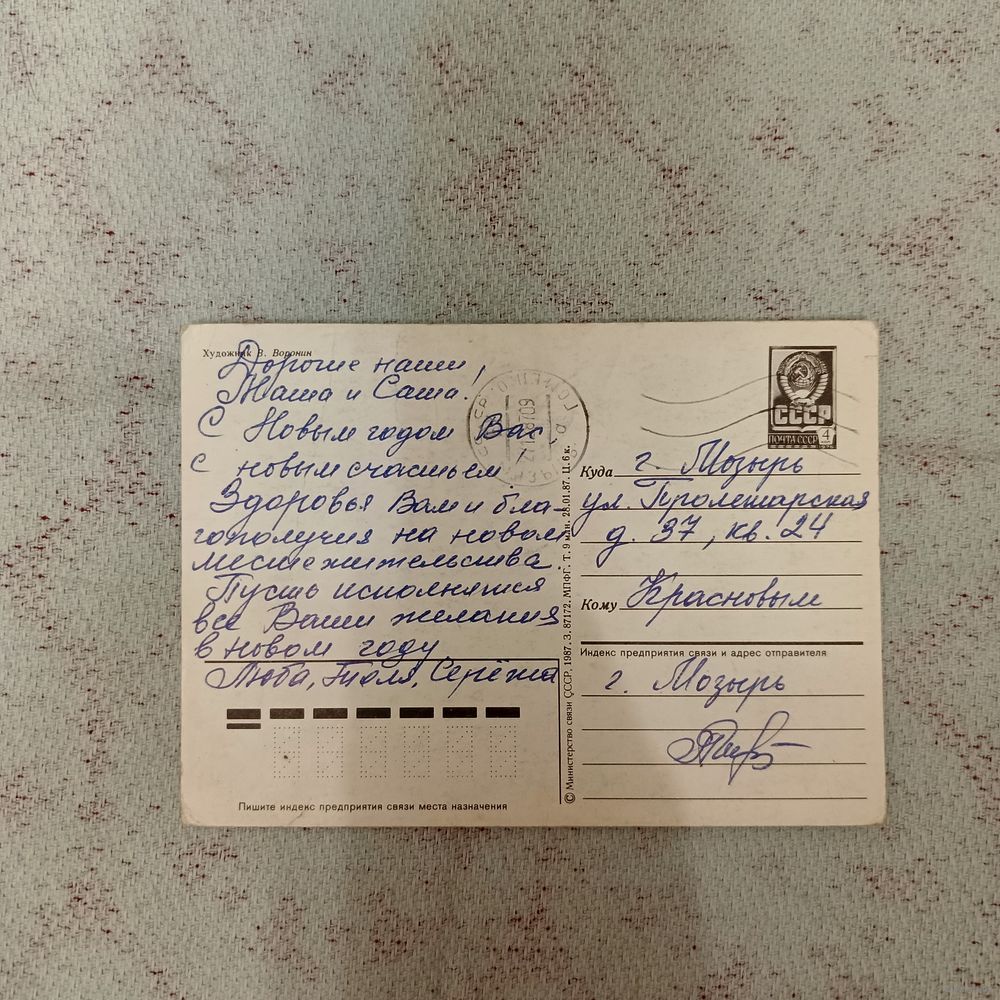 Художник В. Воронин
Дорогие наши
Маша и Саша!
С Новым годом Вас,
с новым счастьем!
Здоровья Вам и бла-
гополучия на новом
месте жительства.
Пусть исполнятся
все Ваши желания
в новом году
Люба, Толя, Серёжа
Пишите индекс предприятия связи места назначения
© Министерство связи СССР, 1987. З. 87172. МПФГ. Т. 9 млн. 28.01.87. Ц. 6 к.
СССР
ПОЧТА СССР 4
Куда г. Мозырь
ул. Пролетарская
д. 37, кв. 24
Кому Красновым
Индекс предприятия связи и адрес отправителя
г. Мозырь